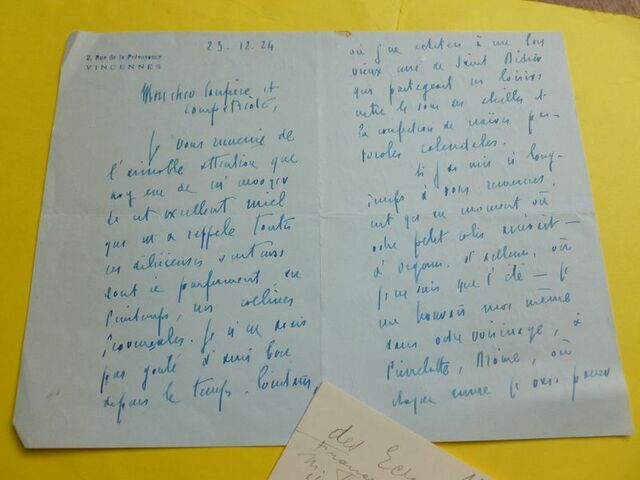 2, Rue de la Prévoyance
VINCENNES
23.12.24
Mon cher confrère et
compatriote,
Je vous remercie de
l'aimable attention que
de m'envoyer
de cet excellent miel
qui m'a rappelé toutes
ces délicieuses senteurs
dont se parfument au
Printemps, nos collines
provençales. Je n'en avais
pas goûté d'aussi bon
depuis le temps, lointain,
où j'en achetais à un bon
vieux curé de Saint
qui partageait ses loisirs
entre le soin des abeilles et
la confection de naïves pas-
torales calendales.
Si j'ai mis si long-
temps à vous remercier,
c'est qu'au moment où
votre petit colis arrivait
à Orgon, d'ailleurs, où
je ne suis que l'été — je
me trouvais moi-même
dans votre voisinage, à
Pierrelatte, Drôme, où
chaque année je vais passer
des